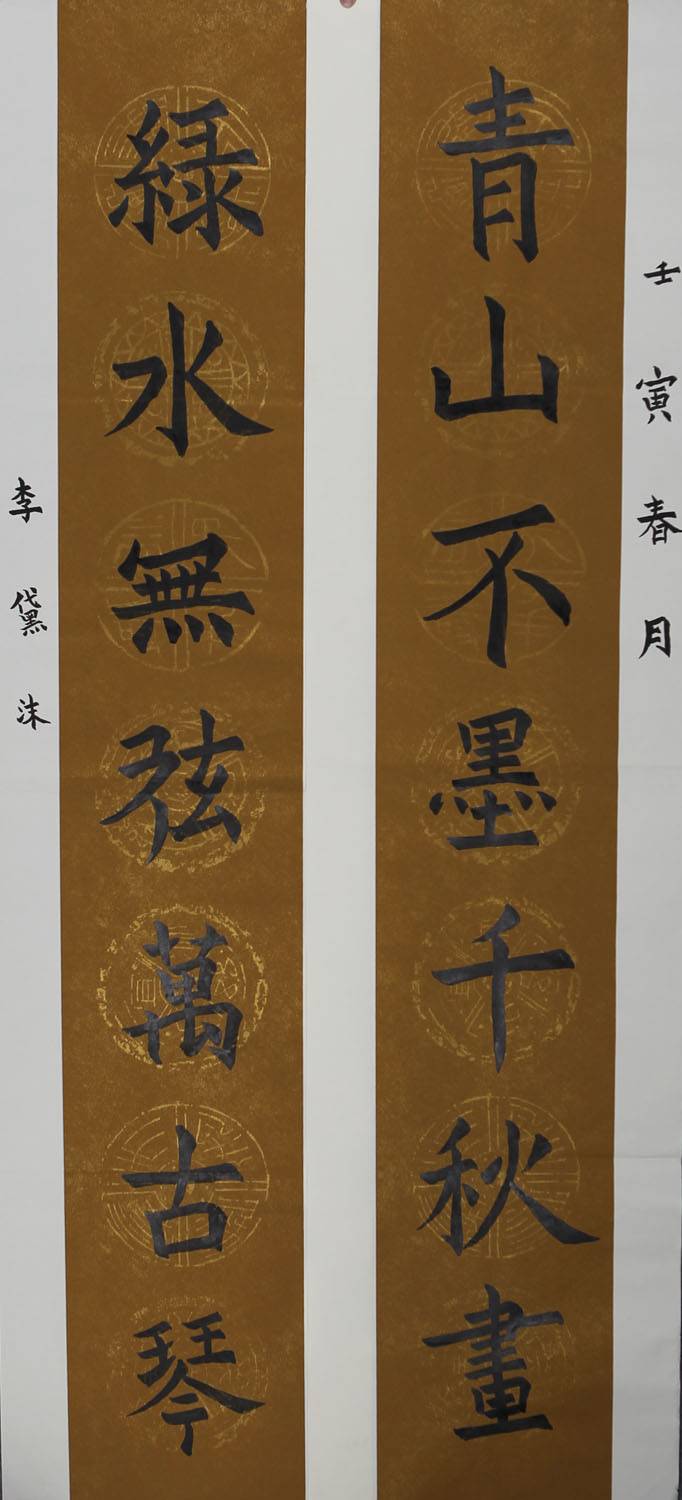 壬寅春月
青山不墨千秋畫
綠水無弦萬古琴
李黛沫